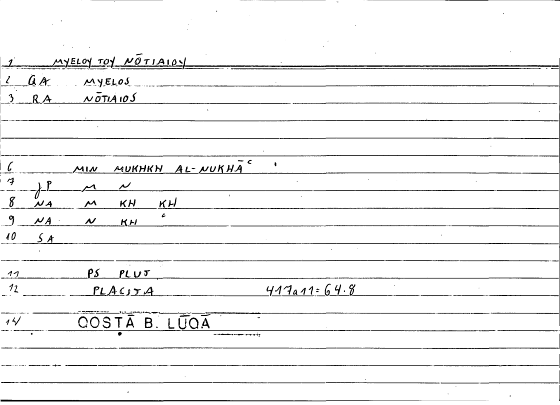 1 MYELOY TOY NŌTIAIOY
2 GA MYELOS
3 RA NŌTIAIOS
6 MIN MUKHKH AL-NUKHĀʿ
7 JP M N
8 NA M KH KH
9 NA N KH ʿ
10 SA
11 PS PLUT
12 PLACITA 417a11=64.8
14 QOSṬĀ B. LŪQĀ